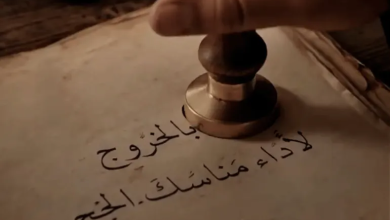 بالخُرُوج
لأدَاء مَنَاسكَ